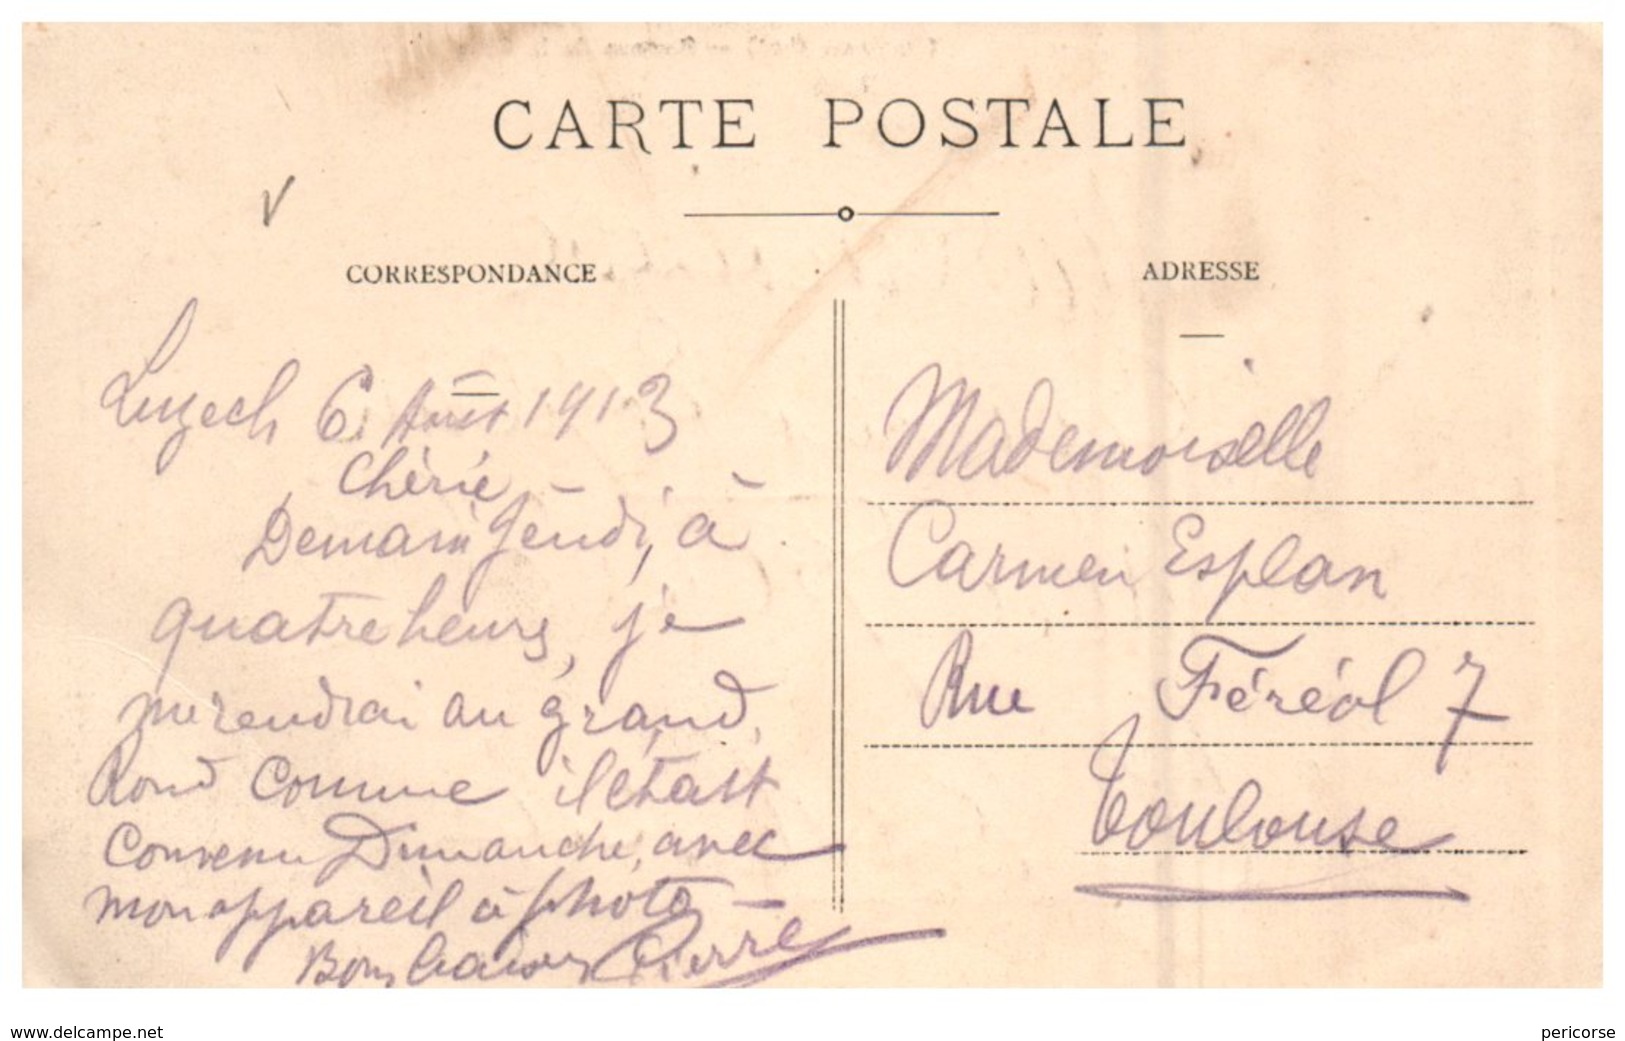 CARTE POSTALE
CORRESPONDANCE
Luzech 6 Août 1913
Chérie
Demain Jeudi, à
quatre heures, je
me rendrai au grand
Rond comme il était
convenu Dimanche, avec
mon appareil à photo —
Bons baisers Pierre
ADRESSE
Mademoiselle
Carmen Esplan
Rue Féréol 7
Toulouse
www.delcampe.net
pericorse